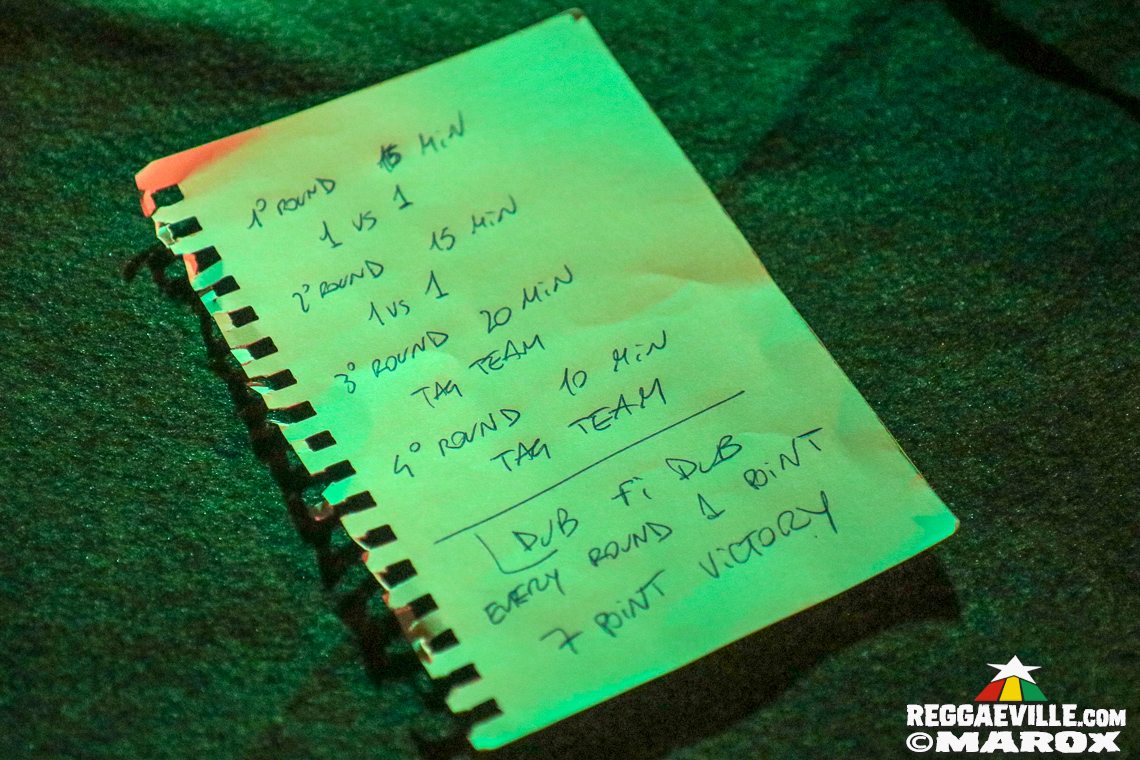 1° ROUND 15 MiN
1 VS 1
2° ROUND 15 MiN
1 VS 1
3° ROUND 20 MiN
TAG TEAM
4° ROUND 10 MiN
TAG TEAM
DUB Fi DUB
EVERY ROUND 1 POiNT
7 POiNT ViCTORY
REGGAEVILLE.COM
©MAROX